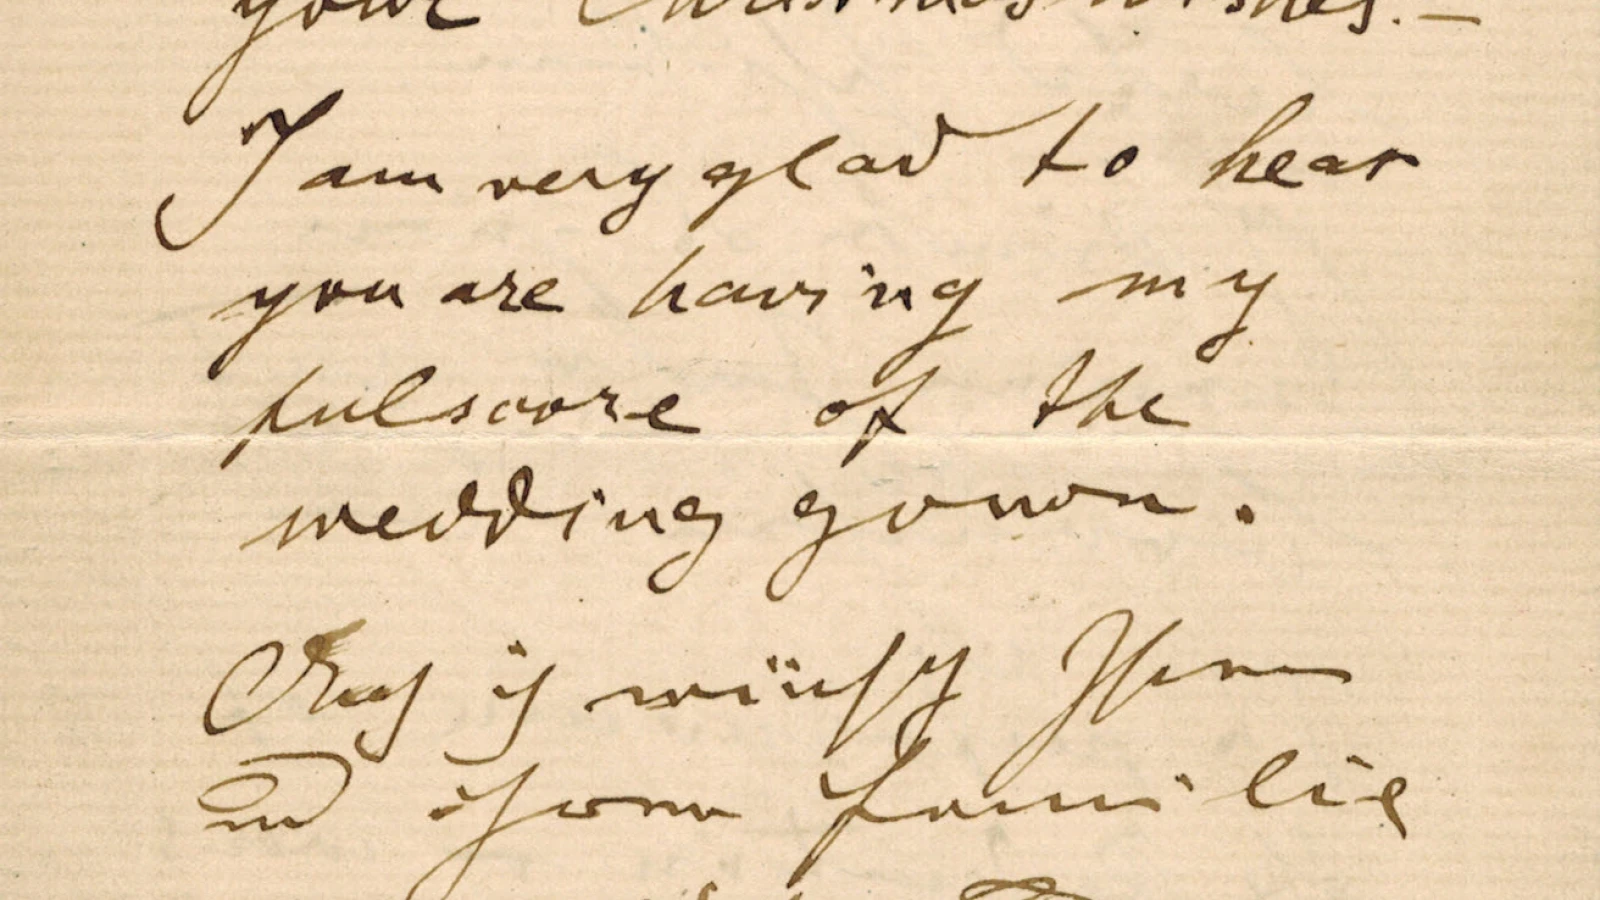 your Christmas wishes. —
I am very glad to hear
you are having my
fulscore of the
wedding gown.
Auch ich wünsche Ihnen
und ihrer familie